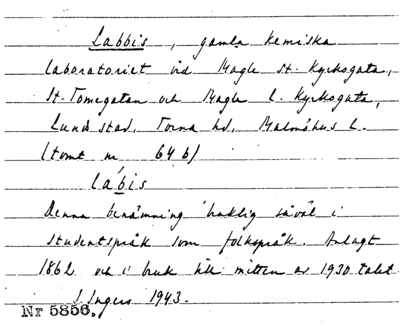 Labbis, gamla kemiska
laboratoriet vid Magle St. Kyrkogata,
St. Tomegatan och Magle L. Kyrkogata,
Lund stad, Torna hd, Malmöhus L.
(tomt nr 64 b)
lábis
Denna benämning bruklig såväl i
studentspråk som folkspråk. Anlagt
1862 och i bruk till mitten av 1930 talet.
I. Ingers 1943.
Nr 5856.